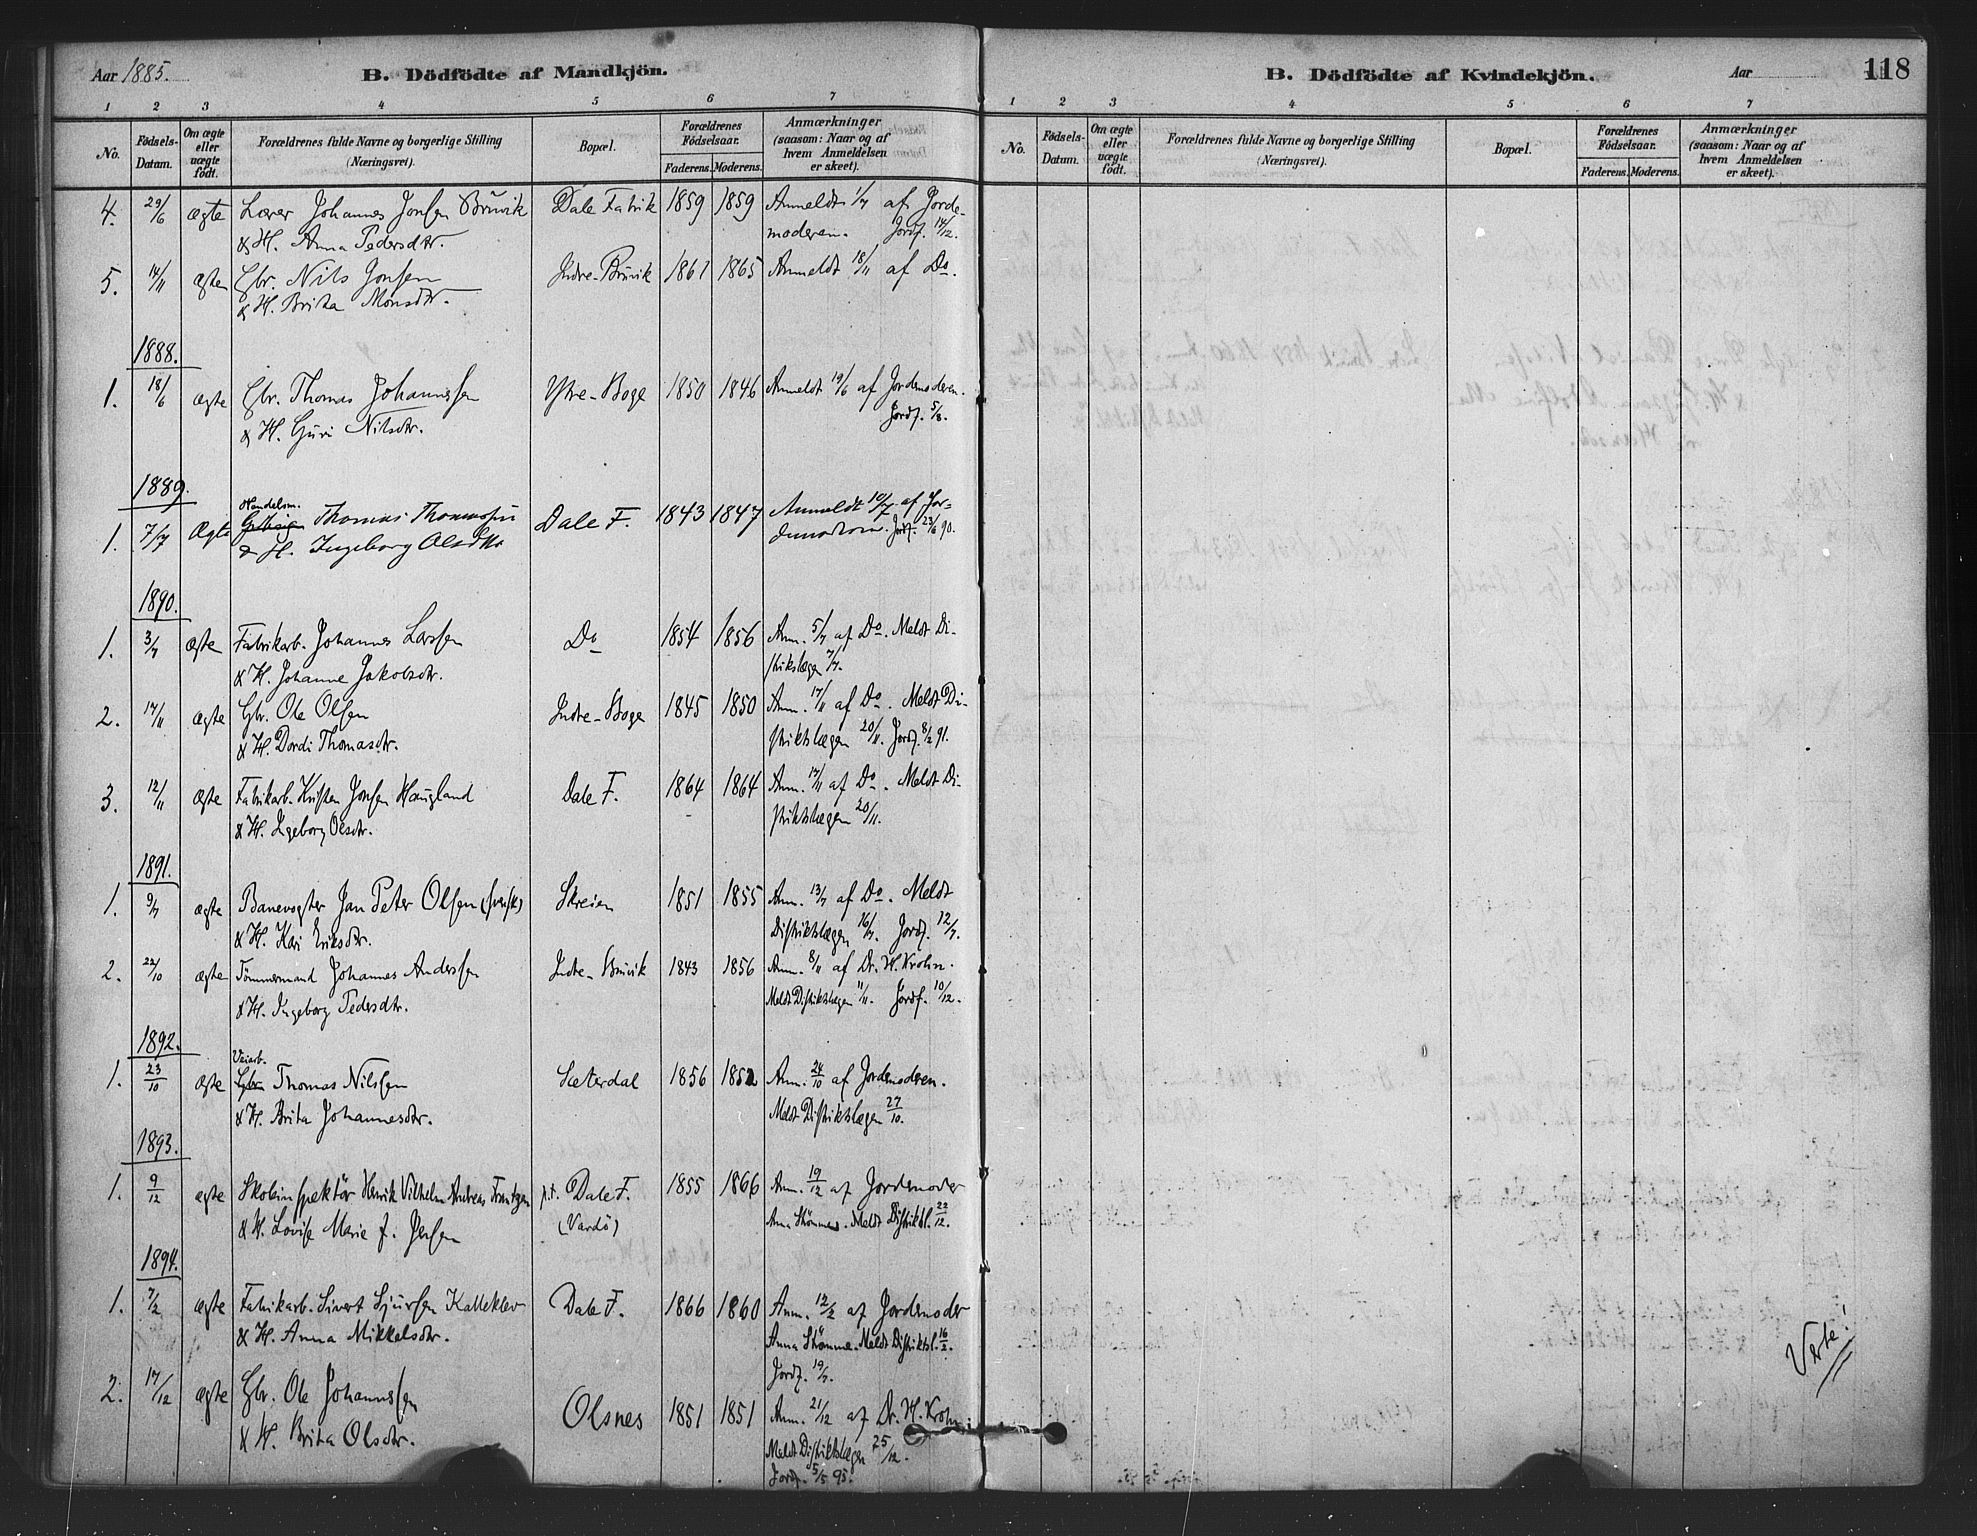 Aar 1885.
B. Dödfödte af Mandkjön.
1 2 3 4 5 6 7
No.
Födsels-Datum.
Om ægte eller uægte födt.
Forældrenes fulde Navne og borgerlige Stilling (Næringsvei).
Bopæl.
Forældrenes Födselsaar.
Faderens. Moderens.
Anmærkninger (saasom: Naar og af hvem Anmeldelsen er skeet).
4. 29/6 ægte Lærer Johannes Jonsen Bruvik Dale Fabrik 1859 1859 Anmeldt 1/7 af Jorde-
& H. Anna Pedersdtr. moderen. Jordf. 14/12.
5. 14/11 ægte Gbr. Nils Jonsen Indre-Bruvik 1861 1865 Anmeldt 18/11 af Do.
& H. Brita Monsdtr.
1888.
1. 18/6 ægte Gbr. Thomas Johannessen Ytre-Boge 1850 1846 Anmeldt 19/6 af Jordemoderen.
& H. Guri Nilsdtr. Jordf. 5/8.
1889.
Handelsm.
1. 7/7 Ægte Thomas Thomassen Dale F. 1843 1847 Anmeldt 10/7 af Jor-
& H. Ingeborg Olsdtr demoderen. Jordf. 23/6 90.
1890.
1. 3/7 ægte Fabrikarb. Johannes Larsen Do 1854 1856 Anm. 5/7 af Do. Meldt Di-
& H. Johanne Jakobsdtr. strikslægen 7/7.
2. 14/11 ægte Gbr. Ole Olsen Indre-Boge 1845 1850 Anm. 17/11 af Do. Meldt Di-
& H. Dordi Thomasdtr. striktslægen 20/11. Jordf. 8/2 91.
3. 12/11 ægte Fabrikarb. Kristen Jonsen Haugland Dale F. 1864 1864 Anm. 17/11 af Do. Meldt Di-
& H. Ingeborg Olsdtr. striktslægen 20/11.
1891.
1. 9/7 ægte Banevogter Jan Peter Olsen (svensk) Skreien 1851 1855 Anm. 13/7 af Do. Meldt
& H. Kari Eriksdtr. Distriktslægen 16/7. Jordf. 12/7.
2. 22/10 ægte Tömmermand Johannes Anderssen Indre-Bruvik 1843 1856 Anm. 8/11 af Dr. H. Krohn.
& H. Ingeborg Pedersdtr. Meldt Distriktslægen 11/11. Jordf. 10/12.
1892.
Veiarb.
1. 23/10 ægte Gbr. Thomas Nilssen Sæterdal 1856 1852 Anm. 24/10 af Jordemoderen.
& H. Brita Johannesdtr. Meldt Distriktslægen 27/10.
1893.
1. 9/12 ægte Skoleinspektör Henrik Vilhelm Andreas Frantzen p.t. Dale F. 1855 1866 Anm. 19/12 af Jordemoder
& H. Lovise Marie f. Jensen (Vardö) Anna Strömme. Meldt Distriktsl. 22/12.
1894.
1. 7/2 ægte Fabrikarb. Sivert Sjursen Kalleklev Dale F. 1866 1860 Anm. 12/2 af Jordemoder
& H. Anna Mikkelsdtr. Anna Strömme. Meldt Distriktsl. 16/2.
Jordf. 19/7.
2. 17/12 ægte Gbr. Ole Johannessen Olsnes 1851 1851 Anm. 21/12 af Dr. H. Krohn
& H. Brita Olsdtr. Meldt Distriktslægen 25/12.
Jordf. 5/5 95.
B. Dödfödte af Kvindekjön.
Aar
118
1 2 3 4 5 6 7
No.
Födsels-Datum.
Om ægte eller uægte födt.
Forældrenes fulde Navne og borgerlige Stilling (Næringsvei).
Bopæl.
Forældrenes Födselsaar.
Faderens. Moderens.
Anmærkninger (saasom: Naar og af hvem Anmeldelsen er skeet).
Verte!